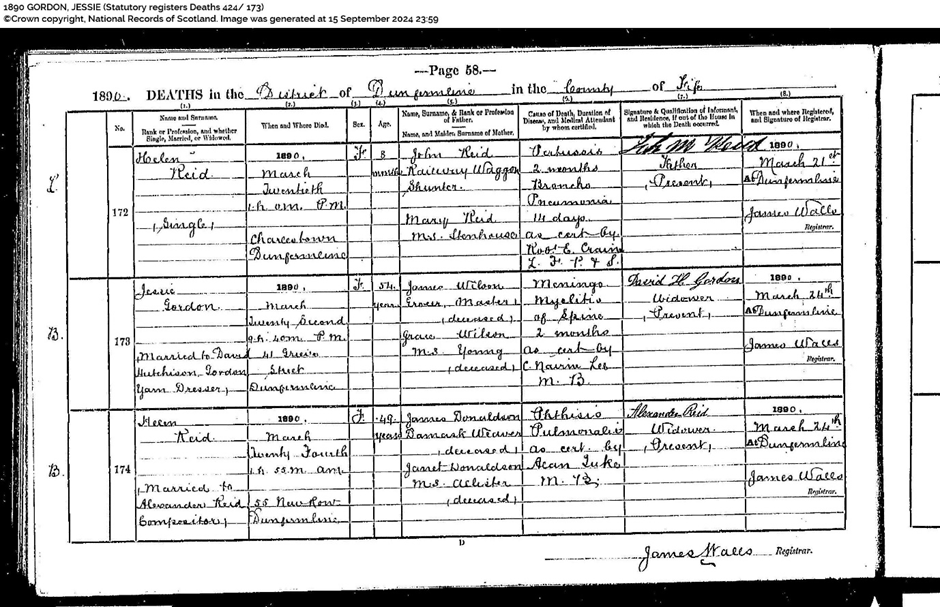 1890 GORDON, JESSIE (Statutory registers Deaths 424/ 173)
©Crown copyright, National Records of Scotland. Image was generated at 15 September 2024 23:59
—Page 58.—
1890. DEATHS in the District of Dunfermline in the County of Fife
(1.) (2.) (3.) (4.) (5.) (6.) (7.) (8.)
No.
Name and Surname.
Rank or Profession, and whether Single, Married, or Widowed.
When and Where Died.
Sex.
Age.
Name, Surname, & Rank or Profession of Father.
Name, and Maiden Surname of Mother.
Cause of Death, Duration of Disease, and Medical Attendant by whom certified.
Signature & Qualification of Informant, and Residence, if out of the House in which the Death occurred.
When and where Registered, and Signature of Registrar.
172
Helen
Reid
(Single)
1890,
March
Twentieth
1 h. 0 m. P.M.
Charlestown
Dunfermline
F.
8
months
John Reid
Railway Waggon
Shunter
Mary Reid
M.S. Stenhouse
Pertussis
2 months
Broncho
Pneumonia
14 days
as cert by
Robt E.
L. F. P. & S.
Reid
Father
(Present)
1890,
March 21st
At Dunfermline
James Walls
Registrar.
B.
173
Jessie
Gordon
(Married to David
Hutchison Gordon
Yarn Dresser)
1890,
March
Twenty Second
9 h. 40 m. P.M.
41
Street
Dunfermline
F.
54
years
James Wilson
Grocer, Master
(deceased)
Grace Wilson
M.S. Young
(deceased)
Meningo
Myelitis
of Spine
2 months
as cert by
C. Nairn Lee
M. B.
David H. Gordon
Widower
(Present)
1890,
March 24th
At Dunfermline
James Walls
Registrar.
B.
174
Helen
Reid
(Married to
Alexander Reid
Compositor)
1890,
March
Twenty Fourth
1 h. 55 m. am
55 New Row
Dunfermline
F.
49
years
James Donaldson
Damask Weaver
(deceased)
Janet Donaldson
M.S.
(deceased)
Phthisis
Pulmonalis
as cert. by
Alan Tuke
M. B.
Alexander Reid
Widower
(Present)
1890,
March 24th
At Dunfermline
James Walls
Registrar.
D
James Walls Registrar.